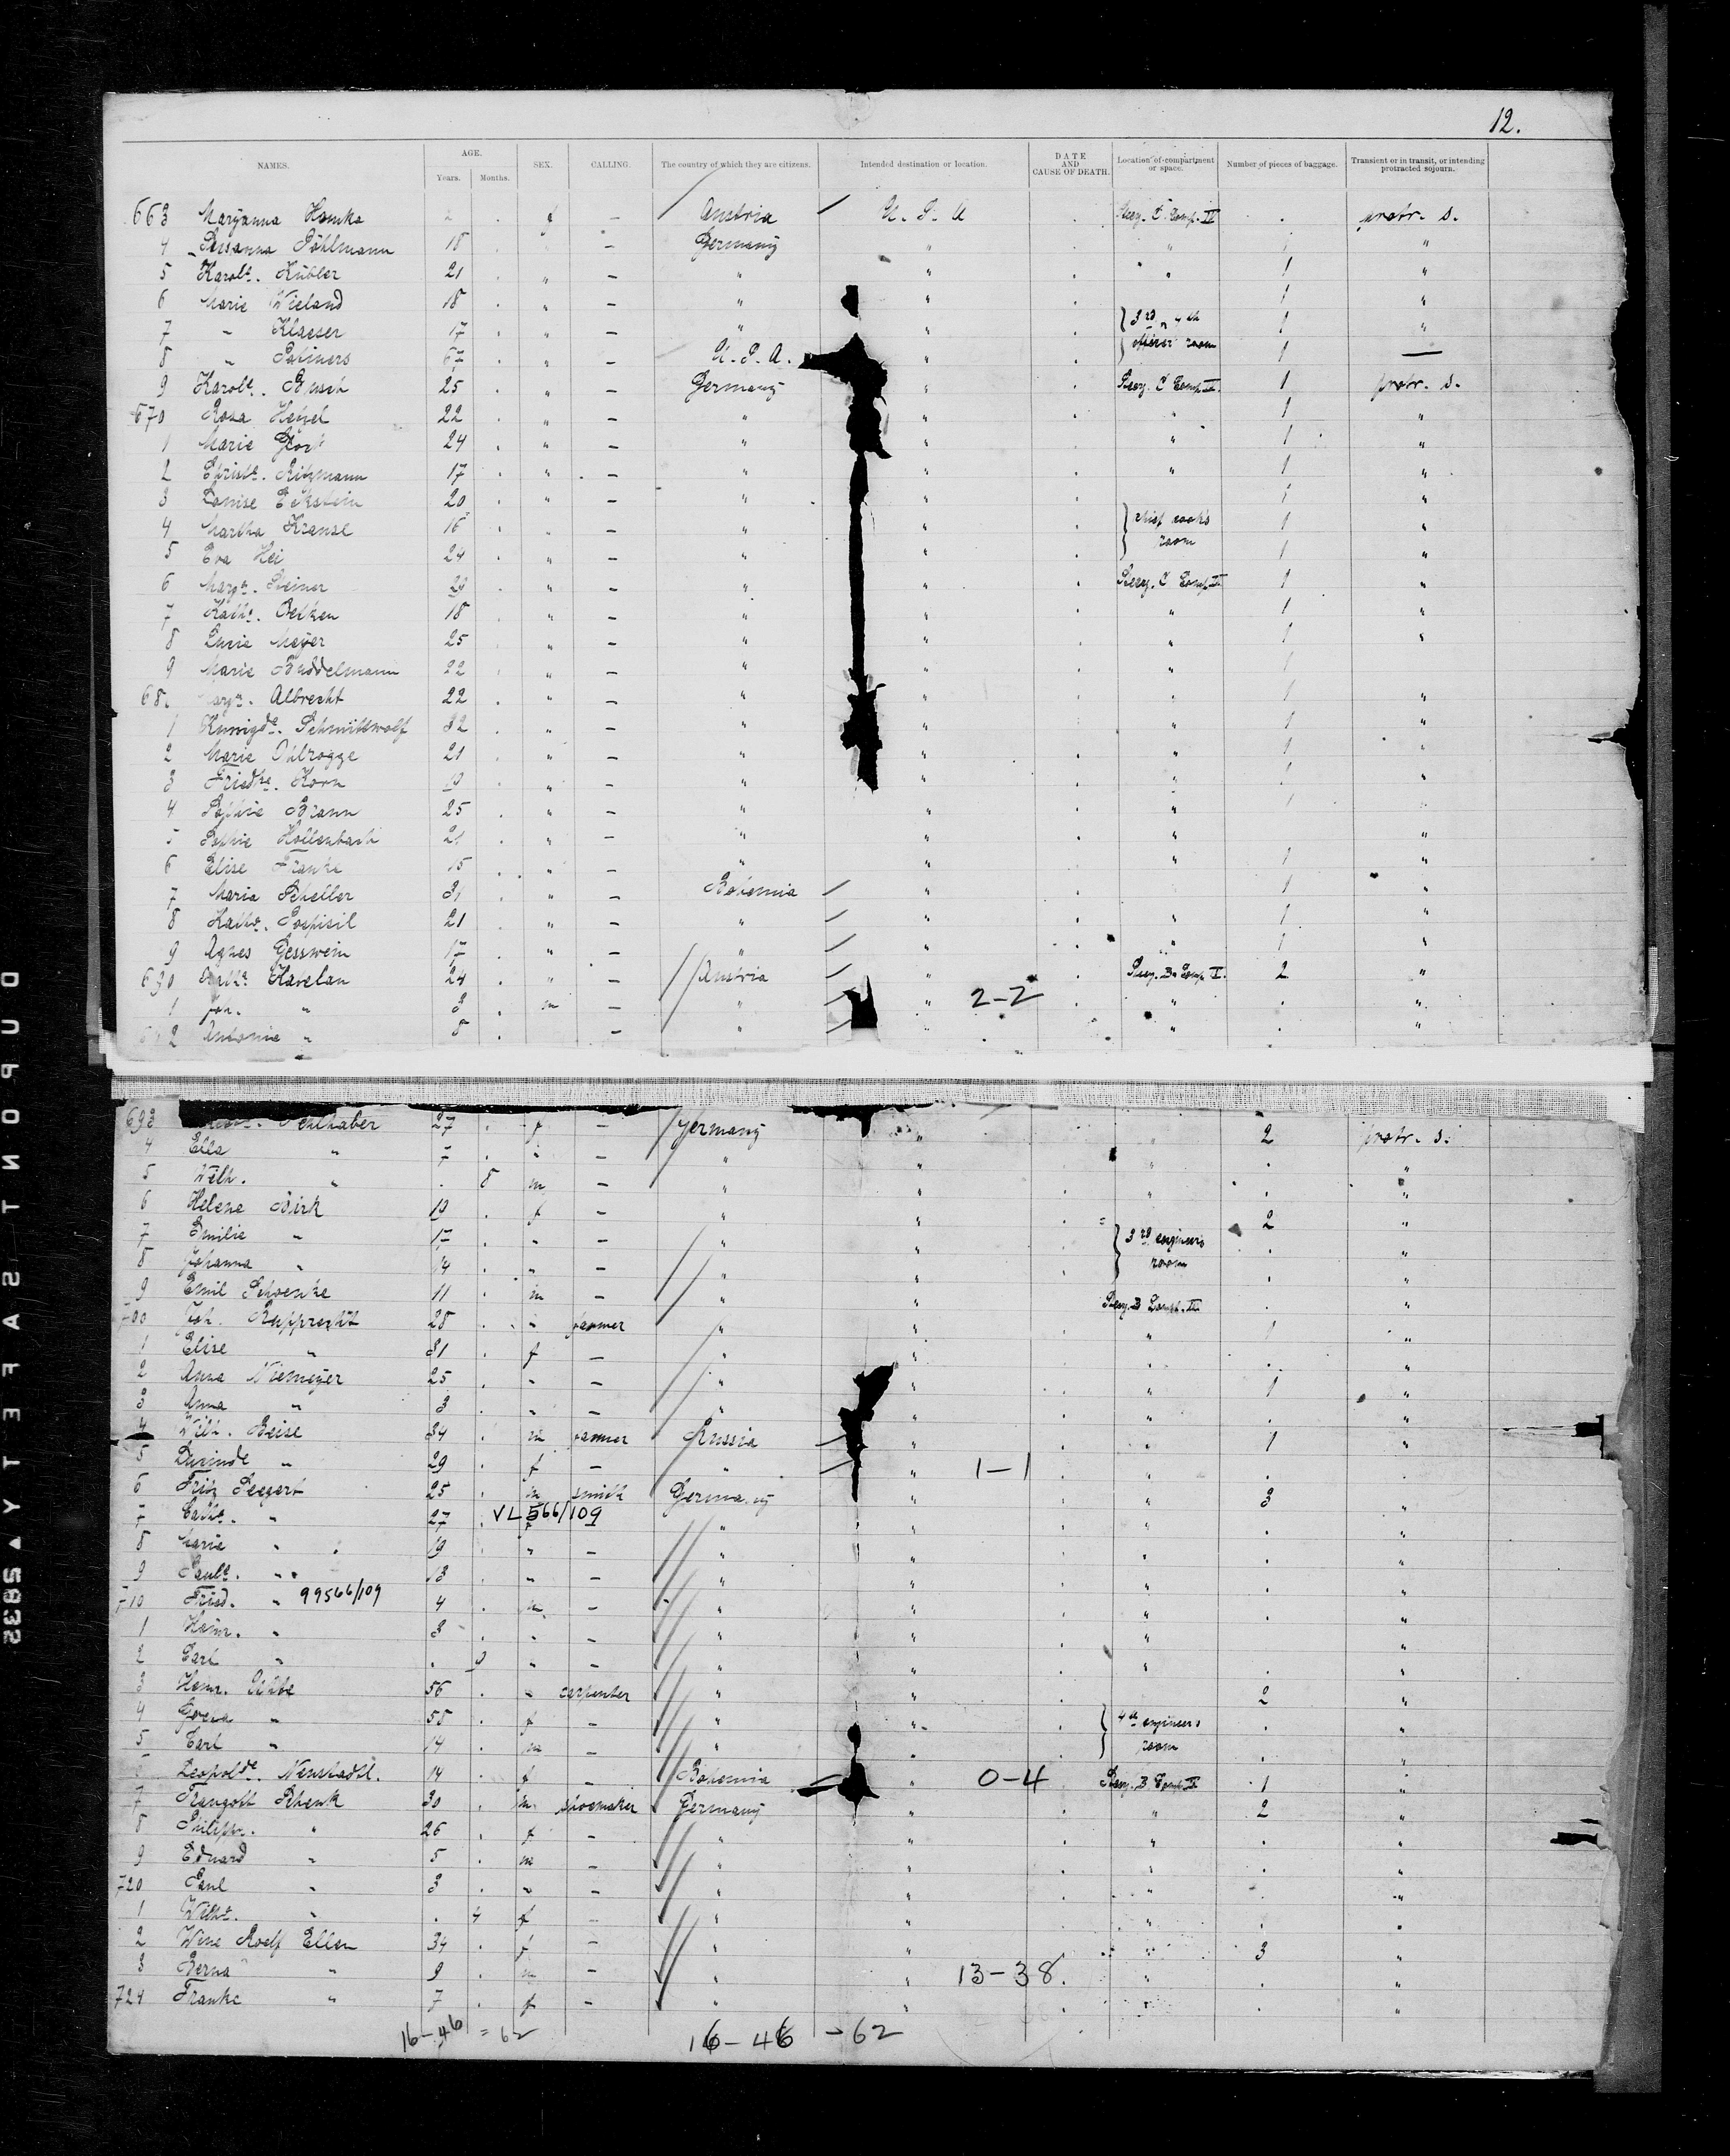 12.
NAMES. AGE. Years. Months. SEX. CALLING. The country of which they are citizens. Intended destination or location. DATE AND CAUSE OF DEATH. Location of compartment or space. Number of pieces of baggage. Transient or in transit, or intending protracted sojourn.
663 Maryanna 2 . f — Austria U. S. A . Steeg. C Comp. IV . protr. s.
4 Susanna Pöhlmann 18 . — Germany " " 1 "
5 Karole. Kübler 21 . " — " " . " 1 "
6 Marie Wieland 18 . " — " " . 1 "
7 " Klaeser 17 . " — " " . } 3rd " 4th 1 "
8 " 67 . " — U. S. A. " . officer room 1 —
9 Karole. Busch 25 . " — Germany " . Steeg. C Comp. IV. 1 protr. s.
670 Rosa Hetzel 22 . " — " " . " 1 "
1 Marie 24 . " — " " . " 1 "
2 Christe. Ritzmann 17 . " — " " . " 1 "
3 Louise Eckstein 20 . " — " " . 1 "
4 Martha Krause 16 . " — " " . } chief cook's 1 "
5 Eva Hei 24 . " — " " . room 1 "
6 Marge. Steiner 29 . " — " " . Steeg. C Comp. IV 1 "
7 Kathe. Oetken 18 . " — " " . " 1 "
8 Lucie Meyer 25 . " — " " . " 1 "
9 Marie Buddelmann 22 . " — " " . " 1
68 Albrecht 22 . " — " " . " 1 "
1 Kunigde. Schmittwolf 32 . " — " " " 1 "
2 Marie Ohlrogge 21 . " — " " . " 1 "
3 Friedke. Korn 19 . " — " " . " 1 "
4 Sophie Braun 25 . " — " " . " 1
5 Sophie Hollenbach 21 . " — " " . " "
6 Elise Franke 15 . " — " " " 1 "
7 Maria Scheller 31 . " — Bohemia " . 1 "
8 Kathe. Pospisil 21 . " — " " . " 1 "
9 Agnes Gesswein 17 . " — " " . " 1 "
690 Kathe. Havelan 24 . " — Austria " . Steeg. B Comp. V. 2 "
1 Joh. " 3 . m — " " 2-2 . " . "
692 Antonie " 8 . — " " " . "
693 27 . f — Germany " 2 protr. s.
4 Ella " 7 . " — " " " . "
5 Wilh. " . 8 m — " " . " . "
6 Helene Birk 19 . f — " " . 2 "
7 Emilie " 17 . " — " " . } 3rd engineers . "
8 Johanna " 14 . " — " " . room . "
9 Emil 11 . m — " " Steeg. B Comp. IV . "
700 Joh. Rupprecht 28 . " farmer " " . " 1 "
1 Elise " 31 . f — " " . " . "
2 Anna Niemeyer 25 . " — " " . " 1 "
3 Anna " 3 . " — " " . " . "
4 Wilh. Beise 34 . m farmer Russia " . " 1 "
5 " 29 . f — " " 1-1 . " .
6 Fritz Seegert 25 . m smith Germany " . " 3 "
7 Cathe. " 27 . VL 566/109 " " . " . "
8 Marie " 19 . " — " " . " . "
9 Paule. " 13 . " — " " . " . "
710 Fried. " 99566/109 4 . m. — " " . " . "
1 Heinr. " 3 . " — " " . " "
2 Carl " . 9 " — " " . " . "
3 Heinr. 56 . " carpenter " " . 2 "
4 " 55 . f — " " . } 4th engineers . "
5 Carl " 14 . m — " " room . "
Leopolde. Neustadtl. 14 . f — Bohemia " 0-4 Steeg. B Comp. IV 1 "
7 Traugott Schenk 30 . m. shoemaker Germany " . " 2 "
8 Philippe. " 26 . f — " " . " . "
9 Eduard " 5 . m — " " . " . "
720 Paul " 3 . " — " " . " . "
1 Wilhe. " . 4 f — " " . " . "
2 Wme Roelf Ellen 34 . f — " " " 3 "
3 Berna " 9 . m — " " 13-38. " . "
724 Franke " 7 . f — " " . " . "
16-46 = 62 16-46 - 62
DUPONT SAFETY ▲ 5835